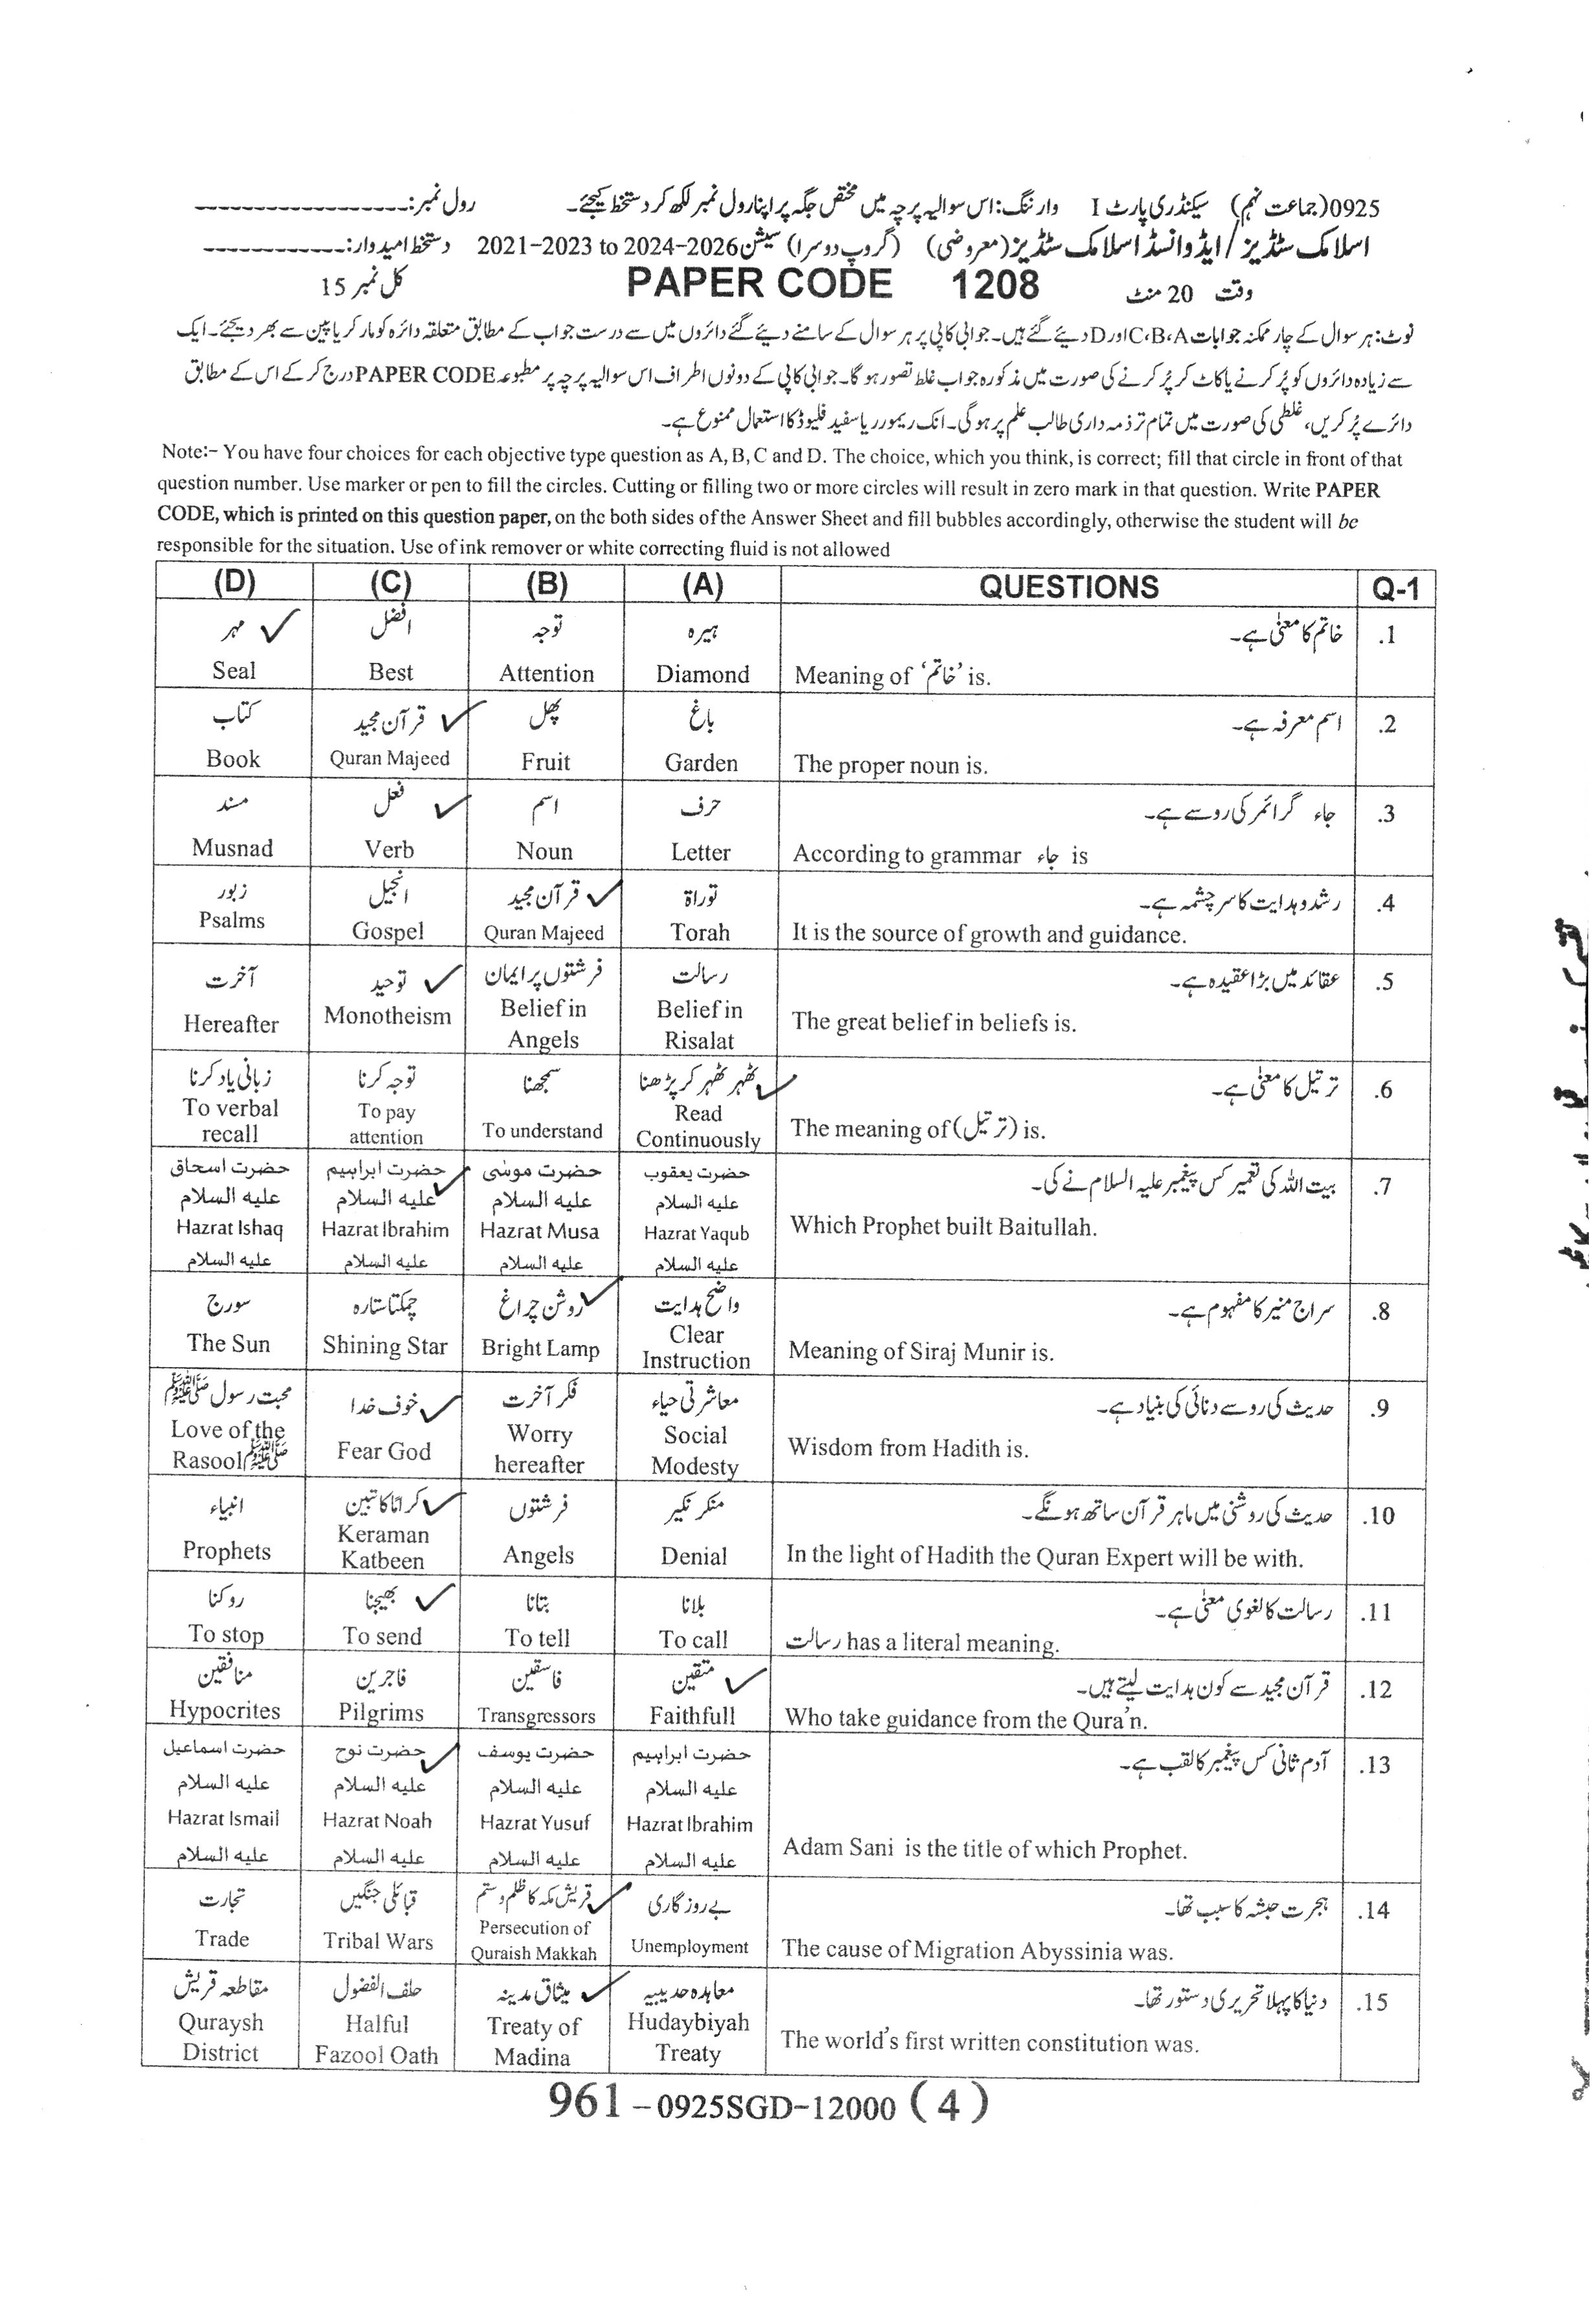 0925(جماعت نہم) سیکنڈری پارٹ I وارننگ: اس سوالیہ پرچہ میں مختص جگہ پر اپنا رول نمبر لکھ کر دستخط کیجئے۔ رول نمبر:
اسلامک سٹڈیز/ایڈوانسڈ اسلامک سٹڈیز(معروضی) (گروپ دوسرا) سیشن 2021-2023 to 2024-2026 دستخط امیدوار:
وقت 20 منٹ PAPER CODE 1208 کل نمبر 15
نوٹ: ہر سوال کے چار ممکنہ جوابات C،B،A اور D دیئے گئے ہیں۔ جوابی کاپی پر ہر سوال کے سامنے دیئے گئے دائروں میں سے درست جواب کے مطابق متعلقہ دائرہ کو مارکر یا پین سے بھر دیجئے۔ ایک
سے زیادہ دائروں کو پُر کرنے یا کاٹ کر پُر کرنے کی صورت میں مذکورہ جواب غلط تصور ہو گا۔ جوابی کاپی کے دونوں اطراف اس سوالیہ پرچہ پر مطبوعہ PAPER CODE درج کر کے اس کے مطابق
دائرے پُر کریں، غلطی کی صورت میں تمام تر ذمہ داری طالب علم پر ہو گی۔ انک ریمور یا سفید فلیوڈ کا استعمال ممنوع ہے۔
Note:- You have four choices for each objective type question as A, B, C and D. The choice, which you think, is correct; fill that circle in front of that
question number. Use marker or pen to fill the circles. Cutting or filling two or more circles will result in zero mark in that question. Write PAPER
CODE, which is printed on this question paper, on the both sides of the Answer Sheet and fill bubbles accordingly, otherwise the student will be
responsible for the situation. Use of ink remover or white correcting fluid is not allowed
(D) (C) (B) (A) QUESTIONS Q-1
مہر افضل توجہ ہیرہ خاتم کا معنیٰ ہے۔ .1
Seal Best Attention Diamond Meaning of ‘خاتم’ is.
کتاب قرآن مجید پھل باغ اسم معرفہ ہے۔ .2
Book Quran Majeed Fruit Garden The proper noun is.
مسند فعل اسم حرف جاء گرائمر کی رو سے ہے۔ .3
Musnad Verb Noun Letter According to grammar جاء is
زبور انجیل قرآن مجید توراۃ رشد و ہدایت کا سر چشمہ ہے۔ .4
Psalms Gospel Quran Majeed Torah It is the source of growth and guidance.
آخرت توحید فرشتوں پر ایمان رسالت عقائد میں بڑا عقیدہ ہے۔ .5
Hereafter Monotheism Belief in Angels Belief in Risalat The great belief in beliefs is.
زبانی یاد کرنا توجہ کرنا سمجھنا ٹھہر ٹھہر کر پڑھنا ترتیل کا معنیٰ ہے۔ .6
To verbal recall To pay attention To understand Read Continuously The meaning of (ترتیل) is.
حضرت اسحاق علیہ السلام حضرت ابراہیم علیہ السلام حضرت موسٰی علیہ السلام حضرت یعقوب علیہ السلام بیت اللہ کی تعمیر کس پیغمبر علیہ السلام نے کی۔ .7
Hazrat Ishaq علیہ السلام Hazrat Ibrahim علیہ السلام Hazrat Musa علیہ السلام Hazrat Yaqub علیہ السلام Which Prophet built Baitullah.
سورج چمکتا ستارہ روشن چراغ واضح ہدایت سراج منیر کا مفہوم ہے۔ .8
The Sun Shining Star Bright Lamp Clear Instruction Meaning of Siraj Munir is.
محبت رسول ﷺ خوف خدا فکر آخرت معاشرتی حیاء حدیث کی رو سے دنائی کی بنیاد ہے۔ .9
Love of the Rasool ﷺ Fear God Worry hereafter Social Modesty Wisdom from Hadith is.
انبیاء کراماً کاتبین فرشتوں منکر نکیر حدیث کی روشنی میں ماہر قرآن ساتھ ہونگے۔ .10
Prophets Keraman Katbeen Angels Denial In the light of Hadith the Quran Expert will be with.
روکنا بھیجنا بتانا بلانا رسالت کا لغوی معنیٰ ہے۔ .11
To stop To send To tell To call رسالت has a literal meaning.
منافقین فاجرین فاسقین متقین قرآن مجید سے کون ہدایت لیتے ہیں۔ .12
Hypocrites Pilgrims Transgressors Faithfull Who take guidance from the Qura'n.
حضرت اسماعیل علیہ السلام حضرت نوح علیہ السلام حضرت یوسف علیہ السلام حضرت ابراہیم علیہ السلام آدم ثانی کس پیغمبر کا لقب ہے۔ .13
Hazrat Ismail علیہ السلام Hazrat Noah علیہ السلام Hazrat Yusuf علیہ السلام Hazrat Ibrahim علیہ السلام Adam Sani is the title of which Prophet.
تجارت قبائلی جنگیں قریش مکہ کا ظلم و ستم بے روزگاری ہجرت حبشہ کا سبب تھا۔ .14
Trade Tribal Wars Persecution of Quraish Makkah Unemployment The cause of Migration Abyssinia was.
مقاطعہ قریش حلف الفضول میثاق مدینہ معاہدہ حدیبیہ دنیا کا پہلا تحریری دستور تھا۔ .15
Quraysh District Halful Fazool Oath Treaty of Madina Hudaybiyah Treaty The world's first written constitution was.
961-0925SGD-12000 (4)